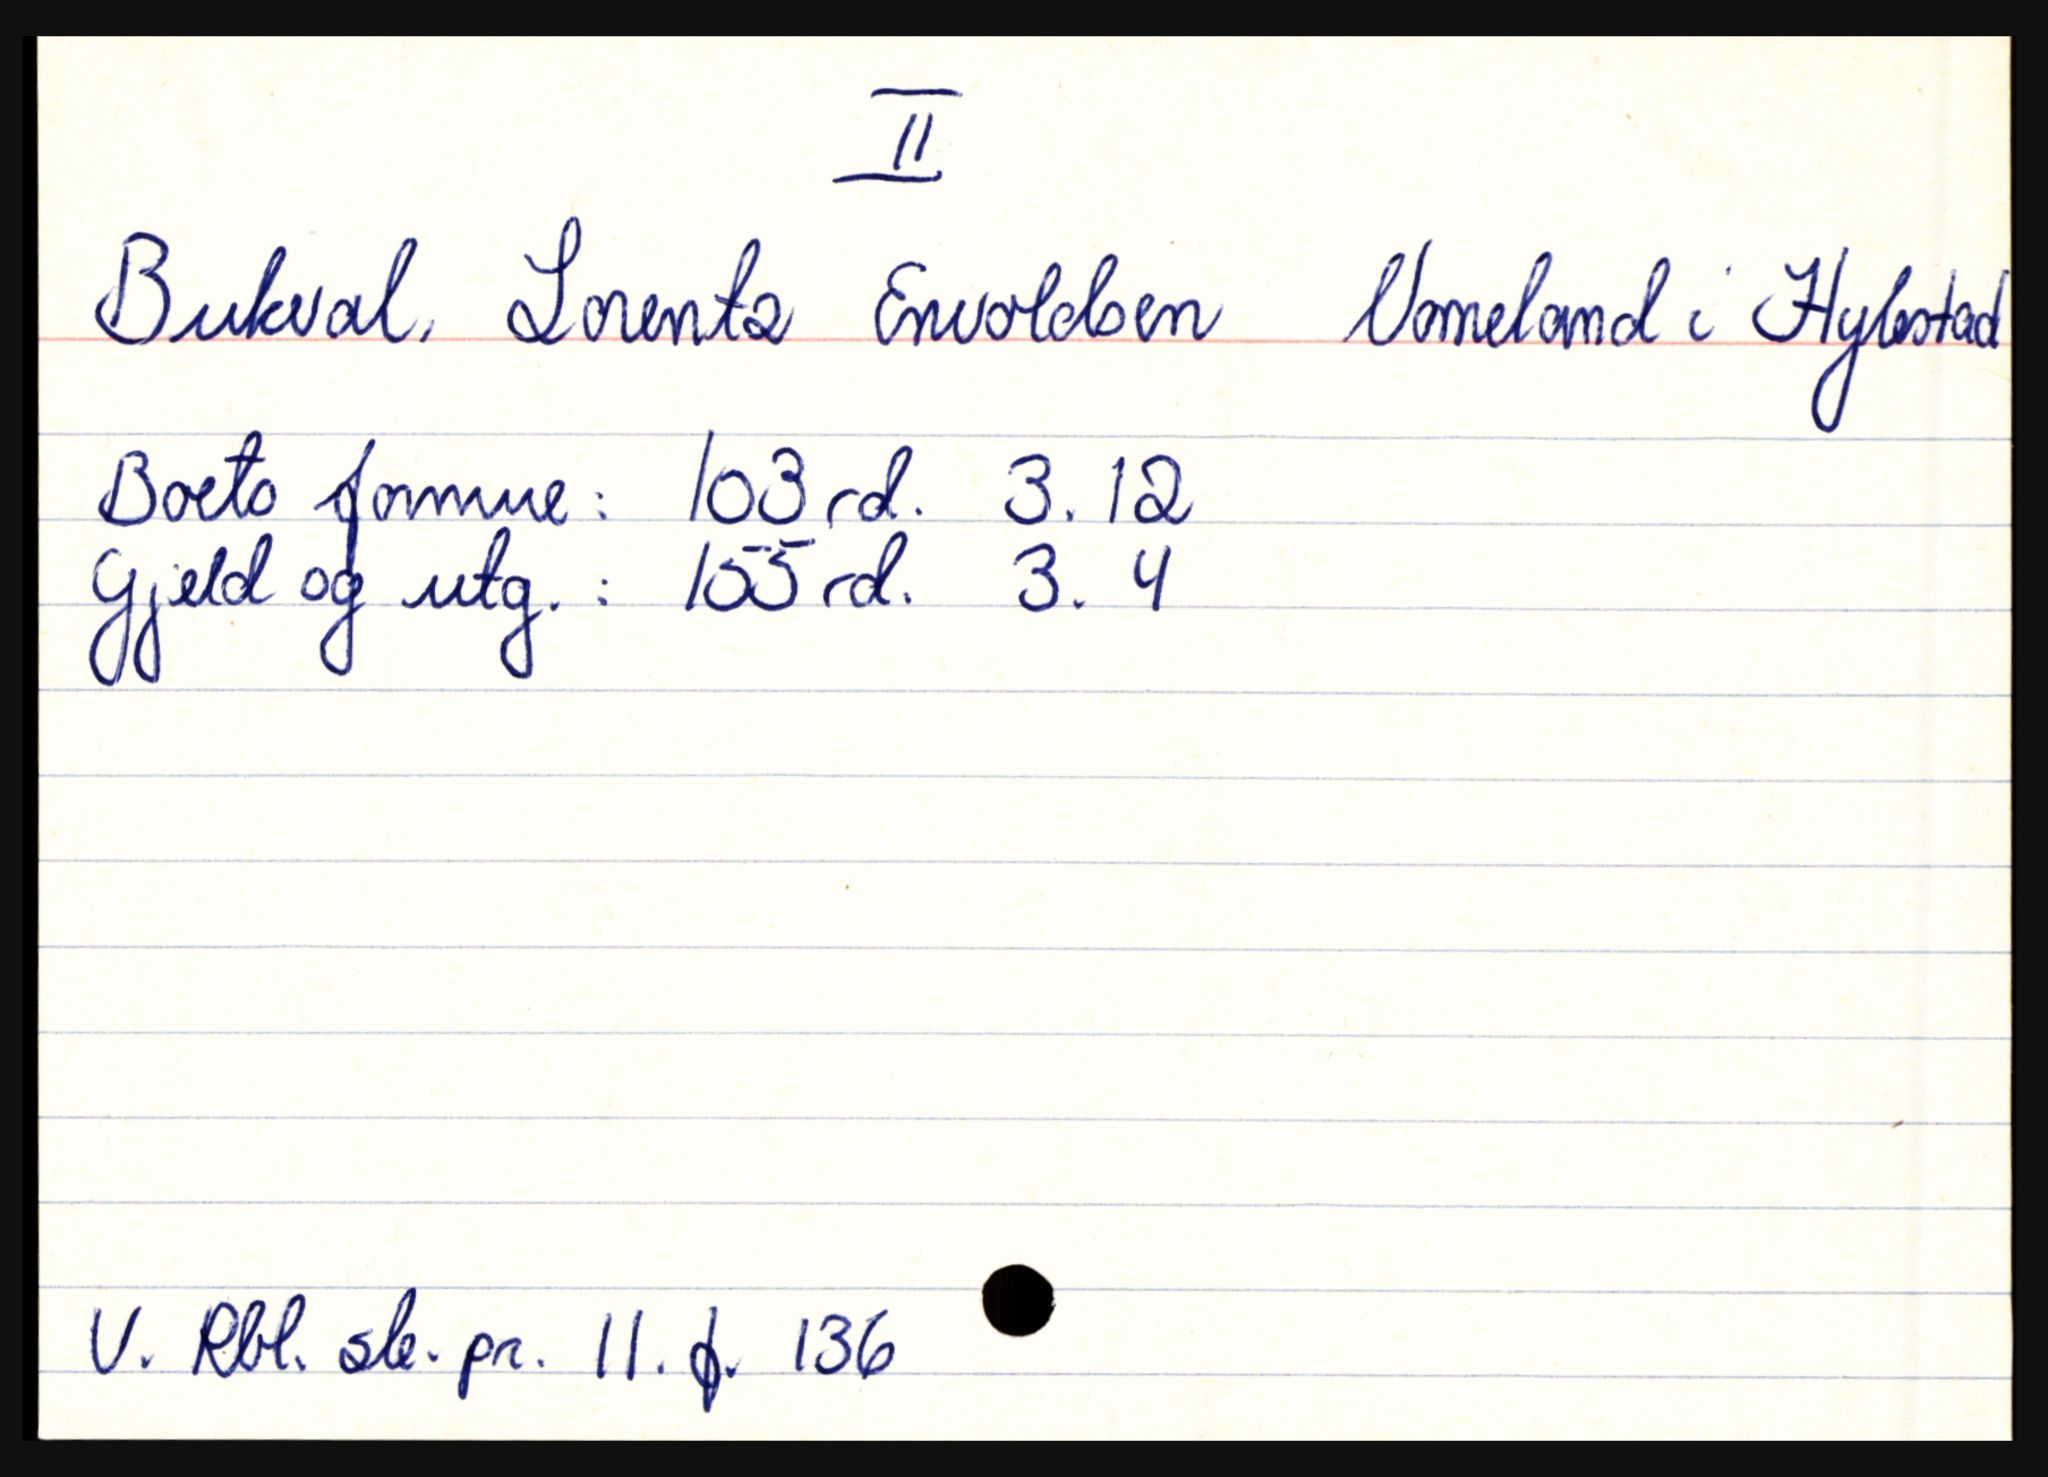 II
Bukval, Lorents Envoldsen Nomeland i Hylestad
Boets formue: 103 rd. 3. 12
Gjeld og utg. : 155 rd. 3. 4
V. Rbl. sk. pr. 11. f. 136